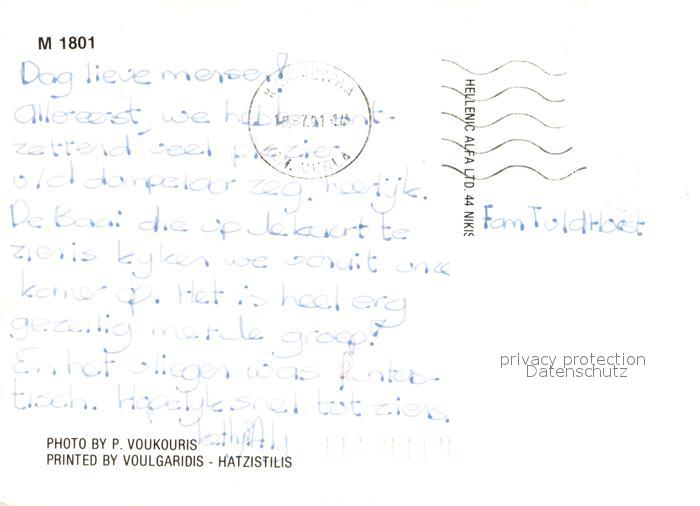 M 1801
Dag lieve mensen!
Allereerst, we hebben ont-
zettend veel plezier
v/d dompelaar zeg, heerlijk.
De Baai die op de kaart te
zien is kijken we vanuit onze
kamer op. Het is heel erg
gezellig met de groep!
En het vliegen was fantas-
tisch. Hopelijk snel tot ziens.
PHOTO BY P. VOUKOURIS
PRINTED BY VOULGARIDIS - HATZISTILIS
HELLENIC ALFA LTD. 44 NIKIS
Fam Tuldhorst
privacy protection
Datenschutz